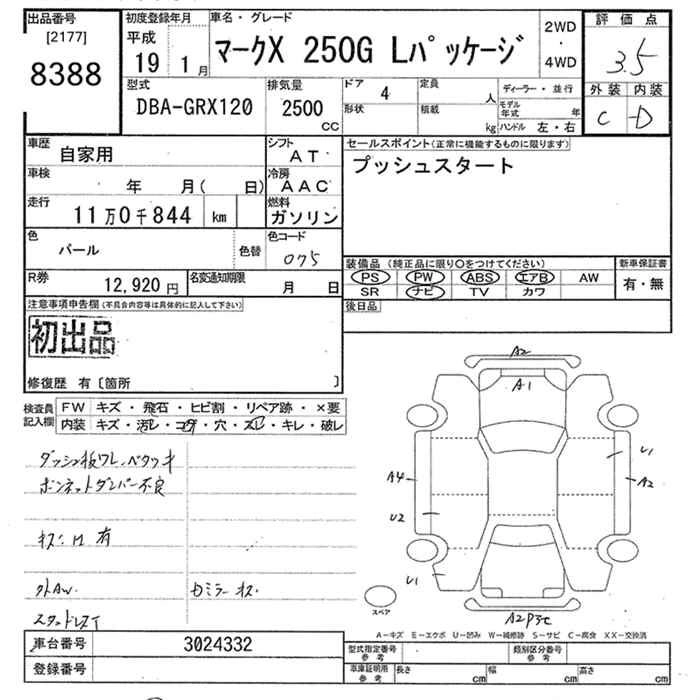 出品番号
[2177]
8388
初度登録年月
平成
19 1月
車名・グレード
マークX 250G Lパッケージ
2WD
・
4WD
評価点
3.5
外装 内装
C D
型式
DBA-GRX120
排気量
2500
CC
ドア 4
形状
定員 人
積載 kg
ディーラー・並行
モデル年式 年
ハンドル 左・右
車歴
自家用
シフト
AT
車検
年 月( 日)
冷房
AAC
走行
11万0千844 km
燃料
ガソリン
色
パール
色替
色コード
075
R券
12,920円
名変通知期限
月 日
セールスポイント(正常に機能するものに限ります)
プッシュスタート
装備品(純正品に限り○をつけてください)
PS PW ABS エアB AW
SR ナビ TV カワ
新車保証書
有・無
後日品
注意事項申告欄(不具合内容等は具体的に記入して下さい)
初出品
修復歴 有〔箇所 〕
検査員記入欄
FW キズ・飛石・ヒビ割・リペア跡・×要
内装 キズ・汚レ・コゲ・穴・スレ・キレ・破レ
ダッシュ板ワレ、ベタツキ
ボンネットダンパー不良
キズ凹有
外AW.
カミラーキズ
スタッドレスT
A2
A1
U1
A4
A2
U2
U1
スペア
A-キズ E-エクボ U-凹み W-補修跡 S-サビ C-腐食 XX-交換済
車台番号
3024332
登録番号
型式指定番号
参考
類別区分番号
参考
車庫証明用
参考
長さ cm
幅 cm
高さ cm